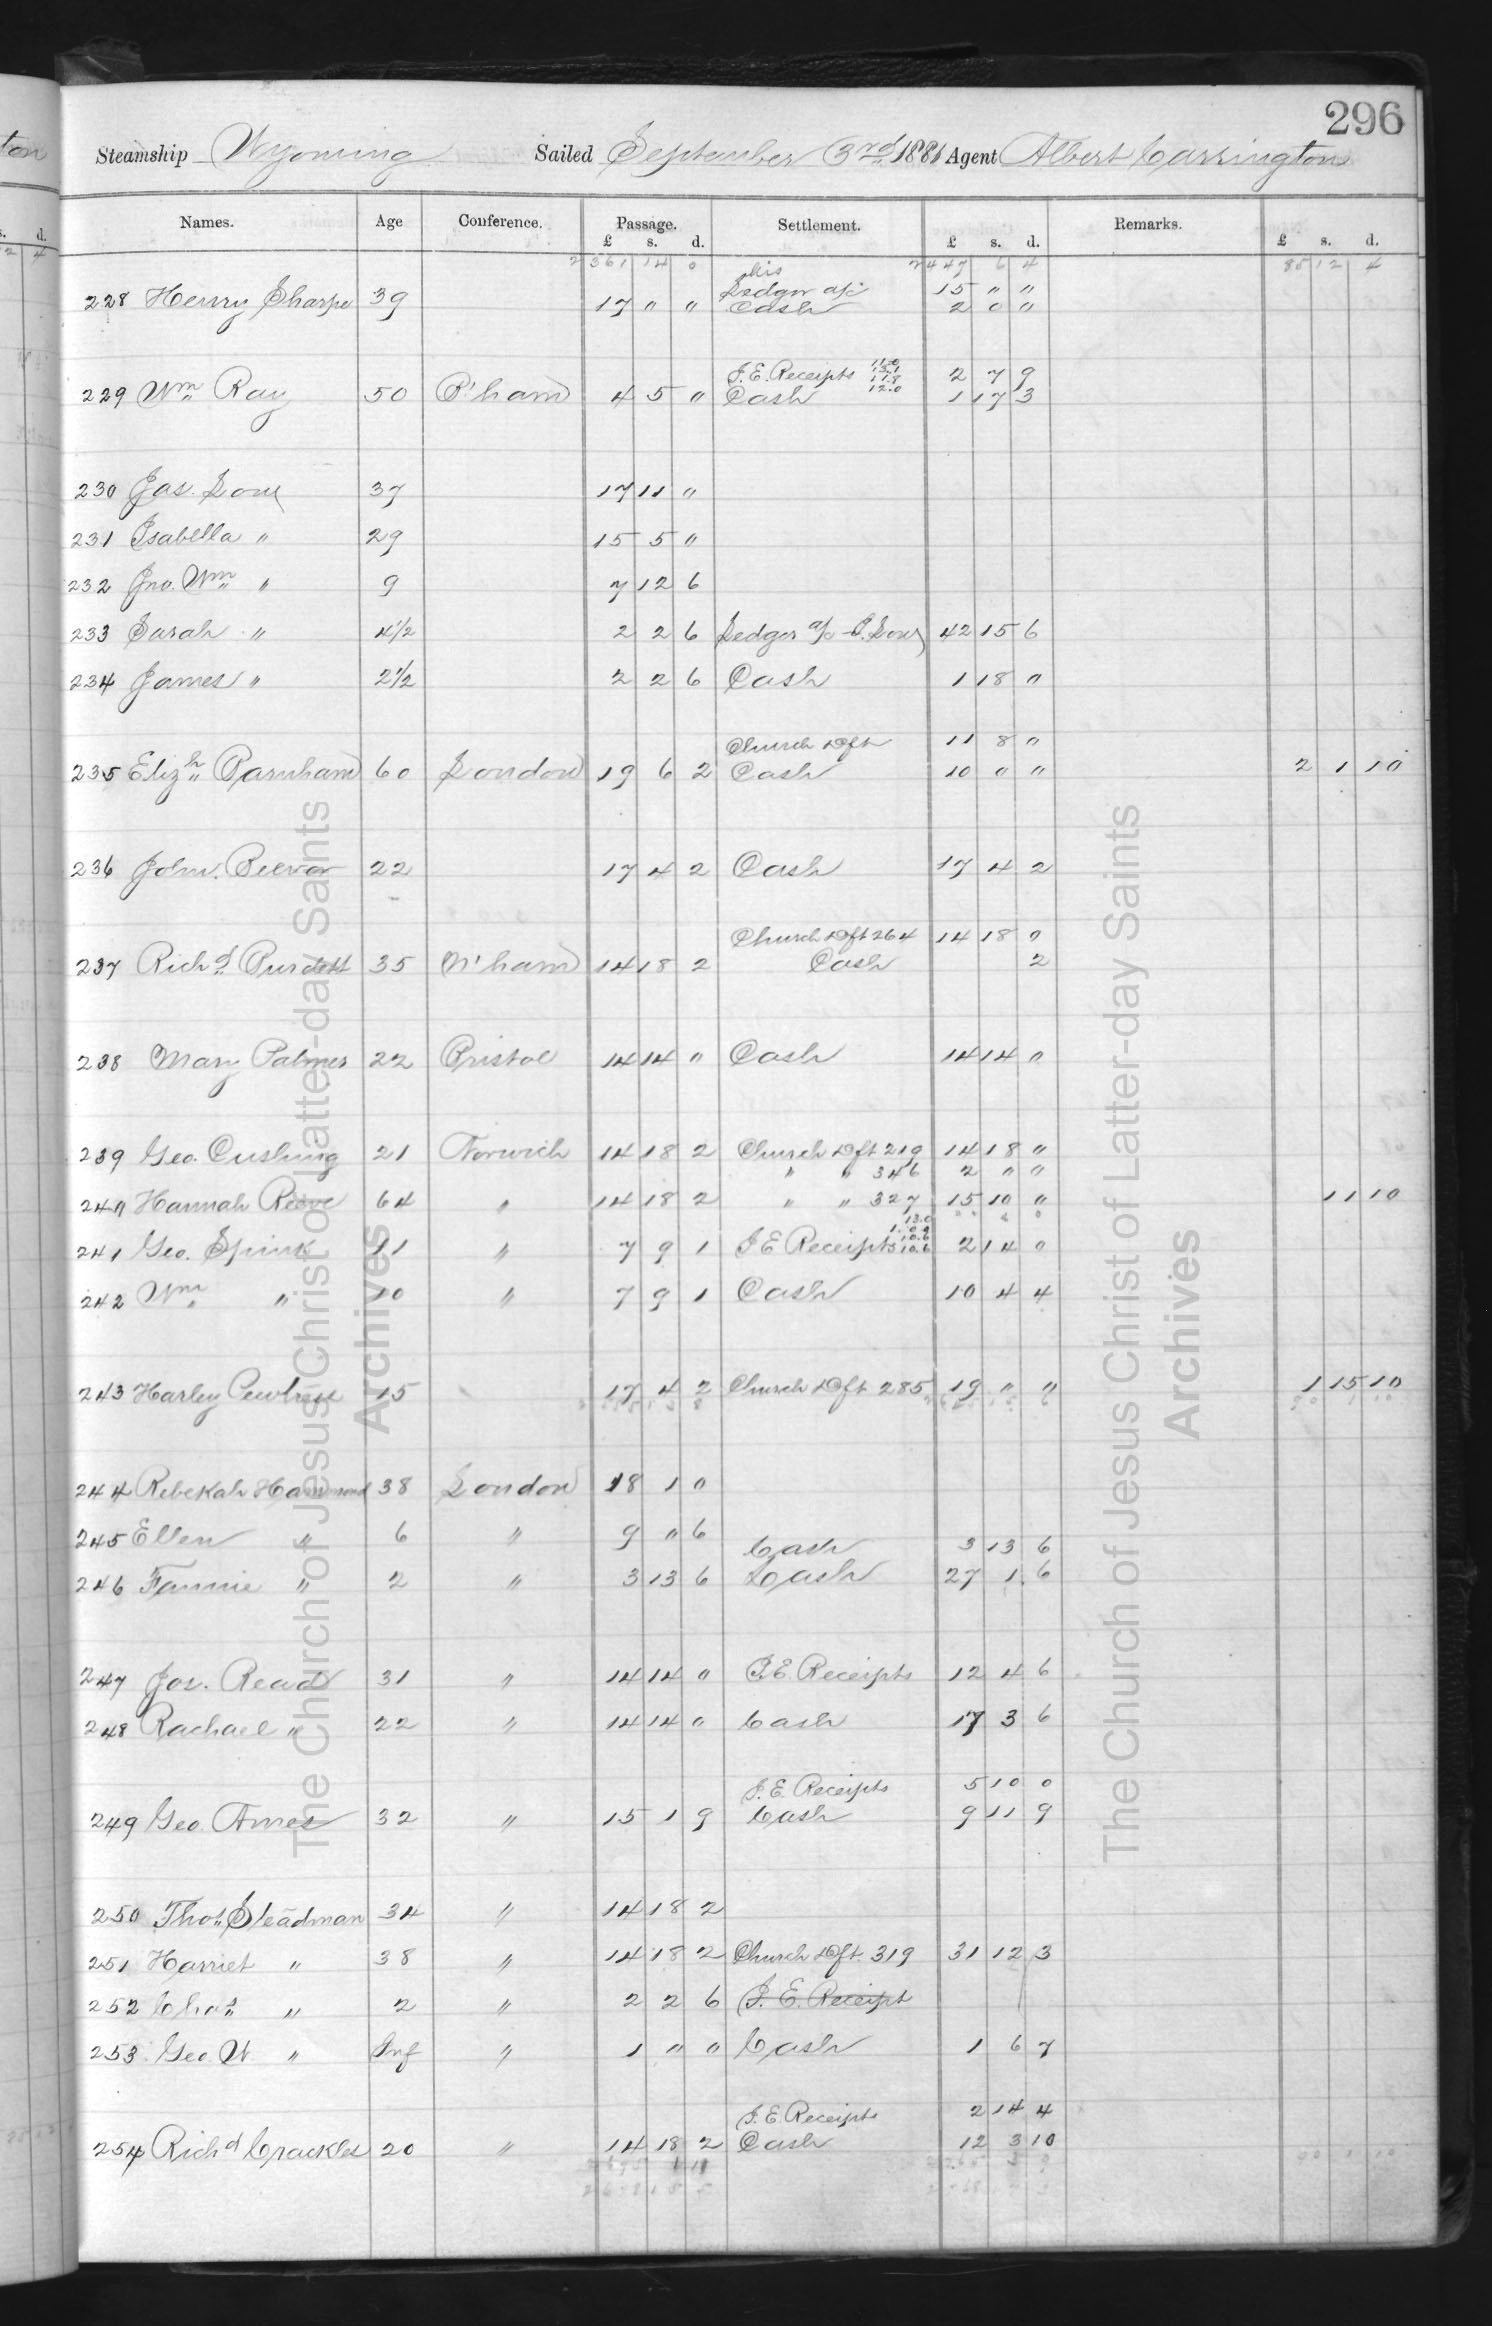 296
Steamship Wyoming Sailed September 3rd 1881 Agent Albert Carrington
Names. Age Conference. Passage. Settlement. Remarks.
£ s. d. £ s. d. £ s. d.
2361 14 0 2447 6 4 85 12 4
his
228 Henry Sharpe 39 17 " " Ledger a/c 15 " "
Cash 2 0 "
229 Wm Ray 50 B'ham 4 5 " I.E. Receipts 2 7 9
Cash 12.0 1 17 3
230 Jas. 37 17 11 "
231 Isabella " 29 15 5 "
232 Jno. Wm " 9 7 12 6
233 Sarah " 4½ 2 2 6 Ledger a/c 42 15 6
234 James " 2½ 2 2 6 Cash 1 18 "
Church Dft 11 8 "
235 Elizh Barnham 60 London 19 6 2 Cash 10 " " 2 1 10
236 John 22 17 4 2 Cash 17 4 2
Church Dft 264 14 18 "
237 Richd Burdett 35 N'ham 14 18 2 Cash 2
238 Mary Palmer 22 Bristol 14 14 " Cash 14 14 "
239 Geo. Cushing 21 Norwich 14 18 2 Church Dft 219 14 18 "
" " 346 2 " "
240 Hannah Reeve 64 " 14 18 2 " " 327 15 10 " 11 10
241 Geo. Spink 11 " 7 9 1 I E Receipts 10.6 2 14 0
242 Wm " 10 " 7 9 1 Cash 10 4 4
243 Harley Pewtress 15 17 4 2 Church Dft 285 19 " " 1 15 10
244 Rebekah Hammond 38 London 18 1 0
245 Ellen " 6 " 9 " 6 Cash 3 13 6
246 Fannie " 2 " 3 13 6 Cash 27 1 6
247 Jos. Read 31 " 14 14 0 I.E. Receipts 12 4 6
248 Rachael " 22 " 14 14 0 Cash 17 3 6
I.E. Receipts 5 10 0
249 Geo. Ames 32 " 15 1 9 Cash 9 11 9
250 Thos Steadman 34 " 14 18 2
251 Harriet " 38 " 14 18 2 Church Dft. 319 31 12 3
252 Chas " 2 " 2 2 6 I.E. Receipt
253 Geo. W. " Inf " 1 " 0 Cash 1 6 7
I.E. Receipts 2 14 4
254 Richd Crackles 20 " 14 18 2 Cash 12 3 10
The Church of Jesus Christ of Latter-day Saints
Archives
The Church of Jesus Christ of Latter-day Saints
Archives